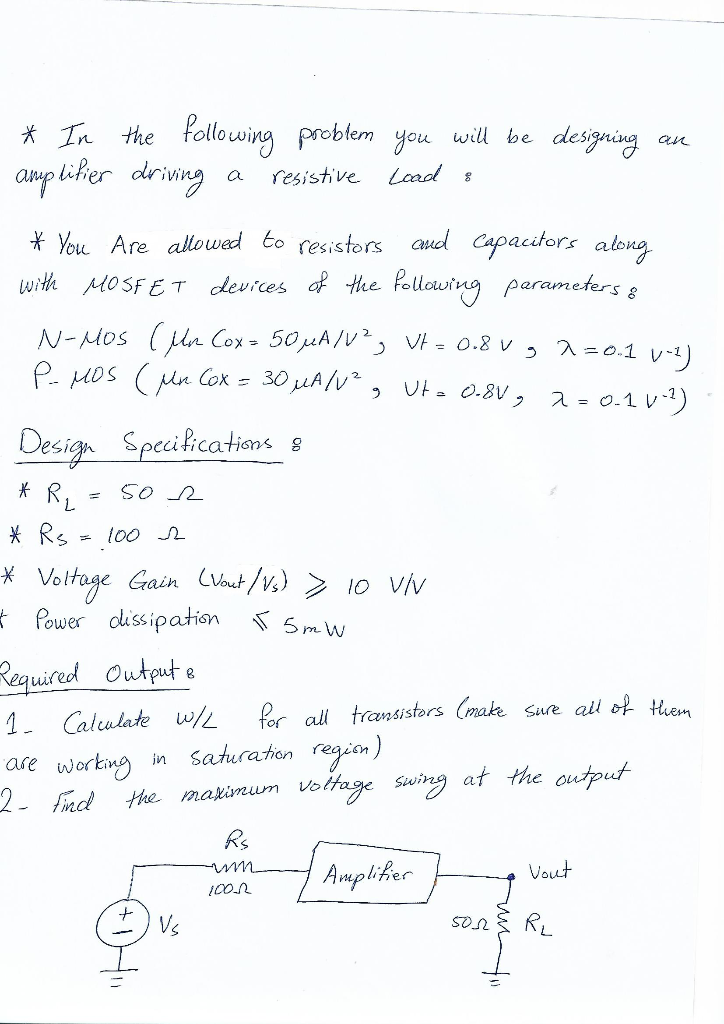 * In the following problem you will be designing an
amplifier driving a resistive Load :
* You Are allowed to resistors and capacitors along
with MOSFET devices of the following parameters :
N-MOS ( μn Cox = 50 μA/V², Vt = 0.8 V , λ = 0.1 V-1)
P- MOS ( μn Cox = 30 μA/V² , Vt = 0.8V, λ = 0-1 V-1)
Design Specifications :
* RL = 50 Ω
* Rs = 100 Ω
* Voltage Gain (Vout/Vs) ⩾ 10 V/V
* Power dissipation ⩽ 5mW
Required Output :
1- Calculate W/L for all transistors (make sure all of them
are working in saturation region)
2- Find the maximum voltage swing at the output
Rs
100Ω
Amplifier
Vout
+
-
Vs
50Ω
RL